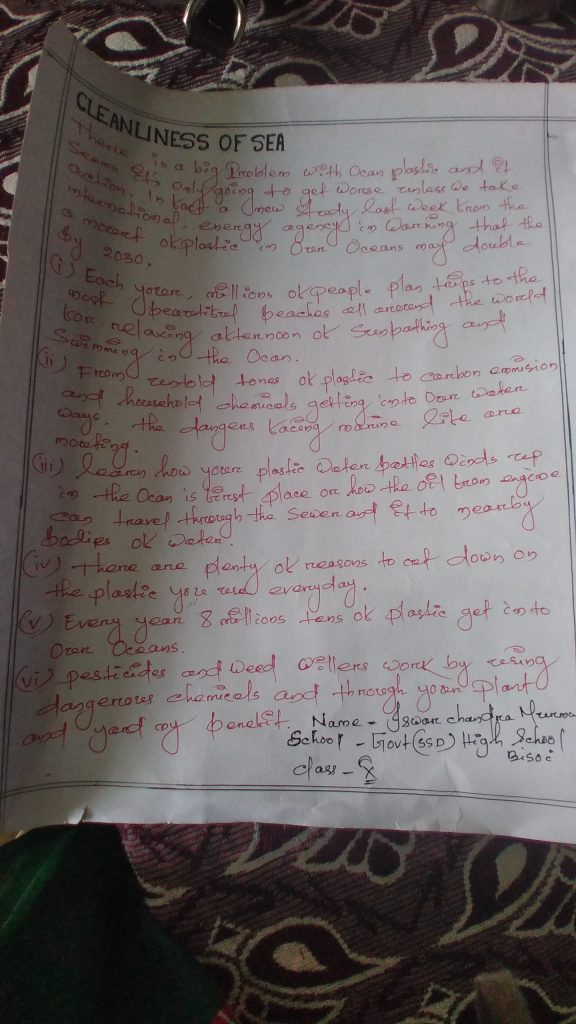 CLEANLINESS OF SEA
There is a big Problem with Ocan plastic and it
Seems it's only going to get worse unless we take
action. In fact a new study last week from the
international energy agency is warning that the
amount of plastic in Our Oceans may double
By 2030.
(i) Each year, millions of people plan trips to the
most beautiful beaches all around the world
for relaxing afternoon of Sunbathing and
Swimming in the Ocan.
(ii) From untold tones of plastic to carbon emmision
and household chemicals getting into Our water
ways. the dangers facing marine life are
(iii) learn how your plastic water bottles winds up
in the Ocan is first place or how the oil from engine
can travel through the Sewer and it to nearby
bodies of water.
(iv) There are plenty of reasons to cut down on
the plastic you use everyday.
(v) Every year 8 millions tens of plastic get into
Our Oceans.
(vi) pesticides and weed willers work by using
dangerous chemicals and through your plant
and yard my benefit.
Name - Iswar chandra Murmu
School - Govt (SSD) High School
Bisoi
class - X